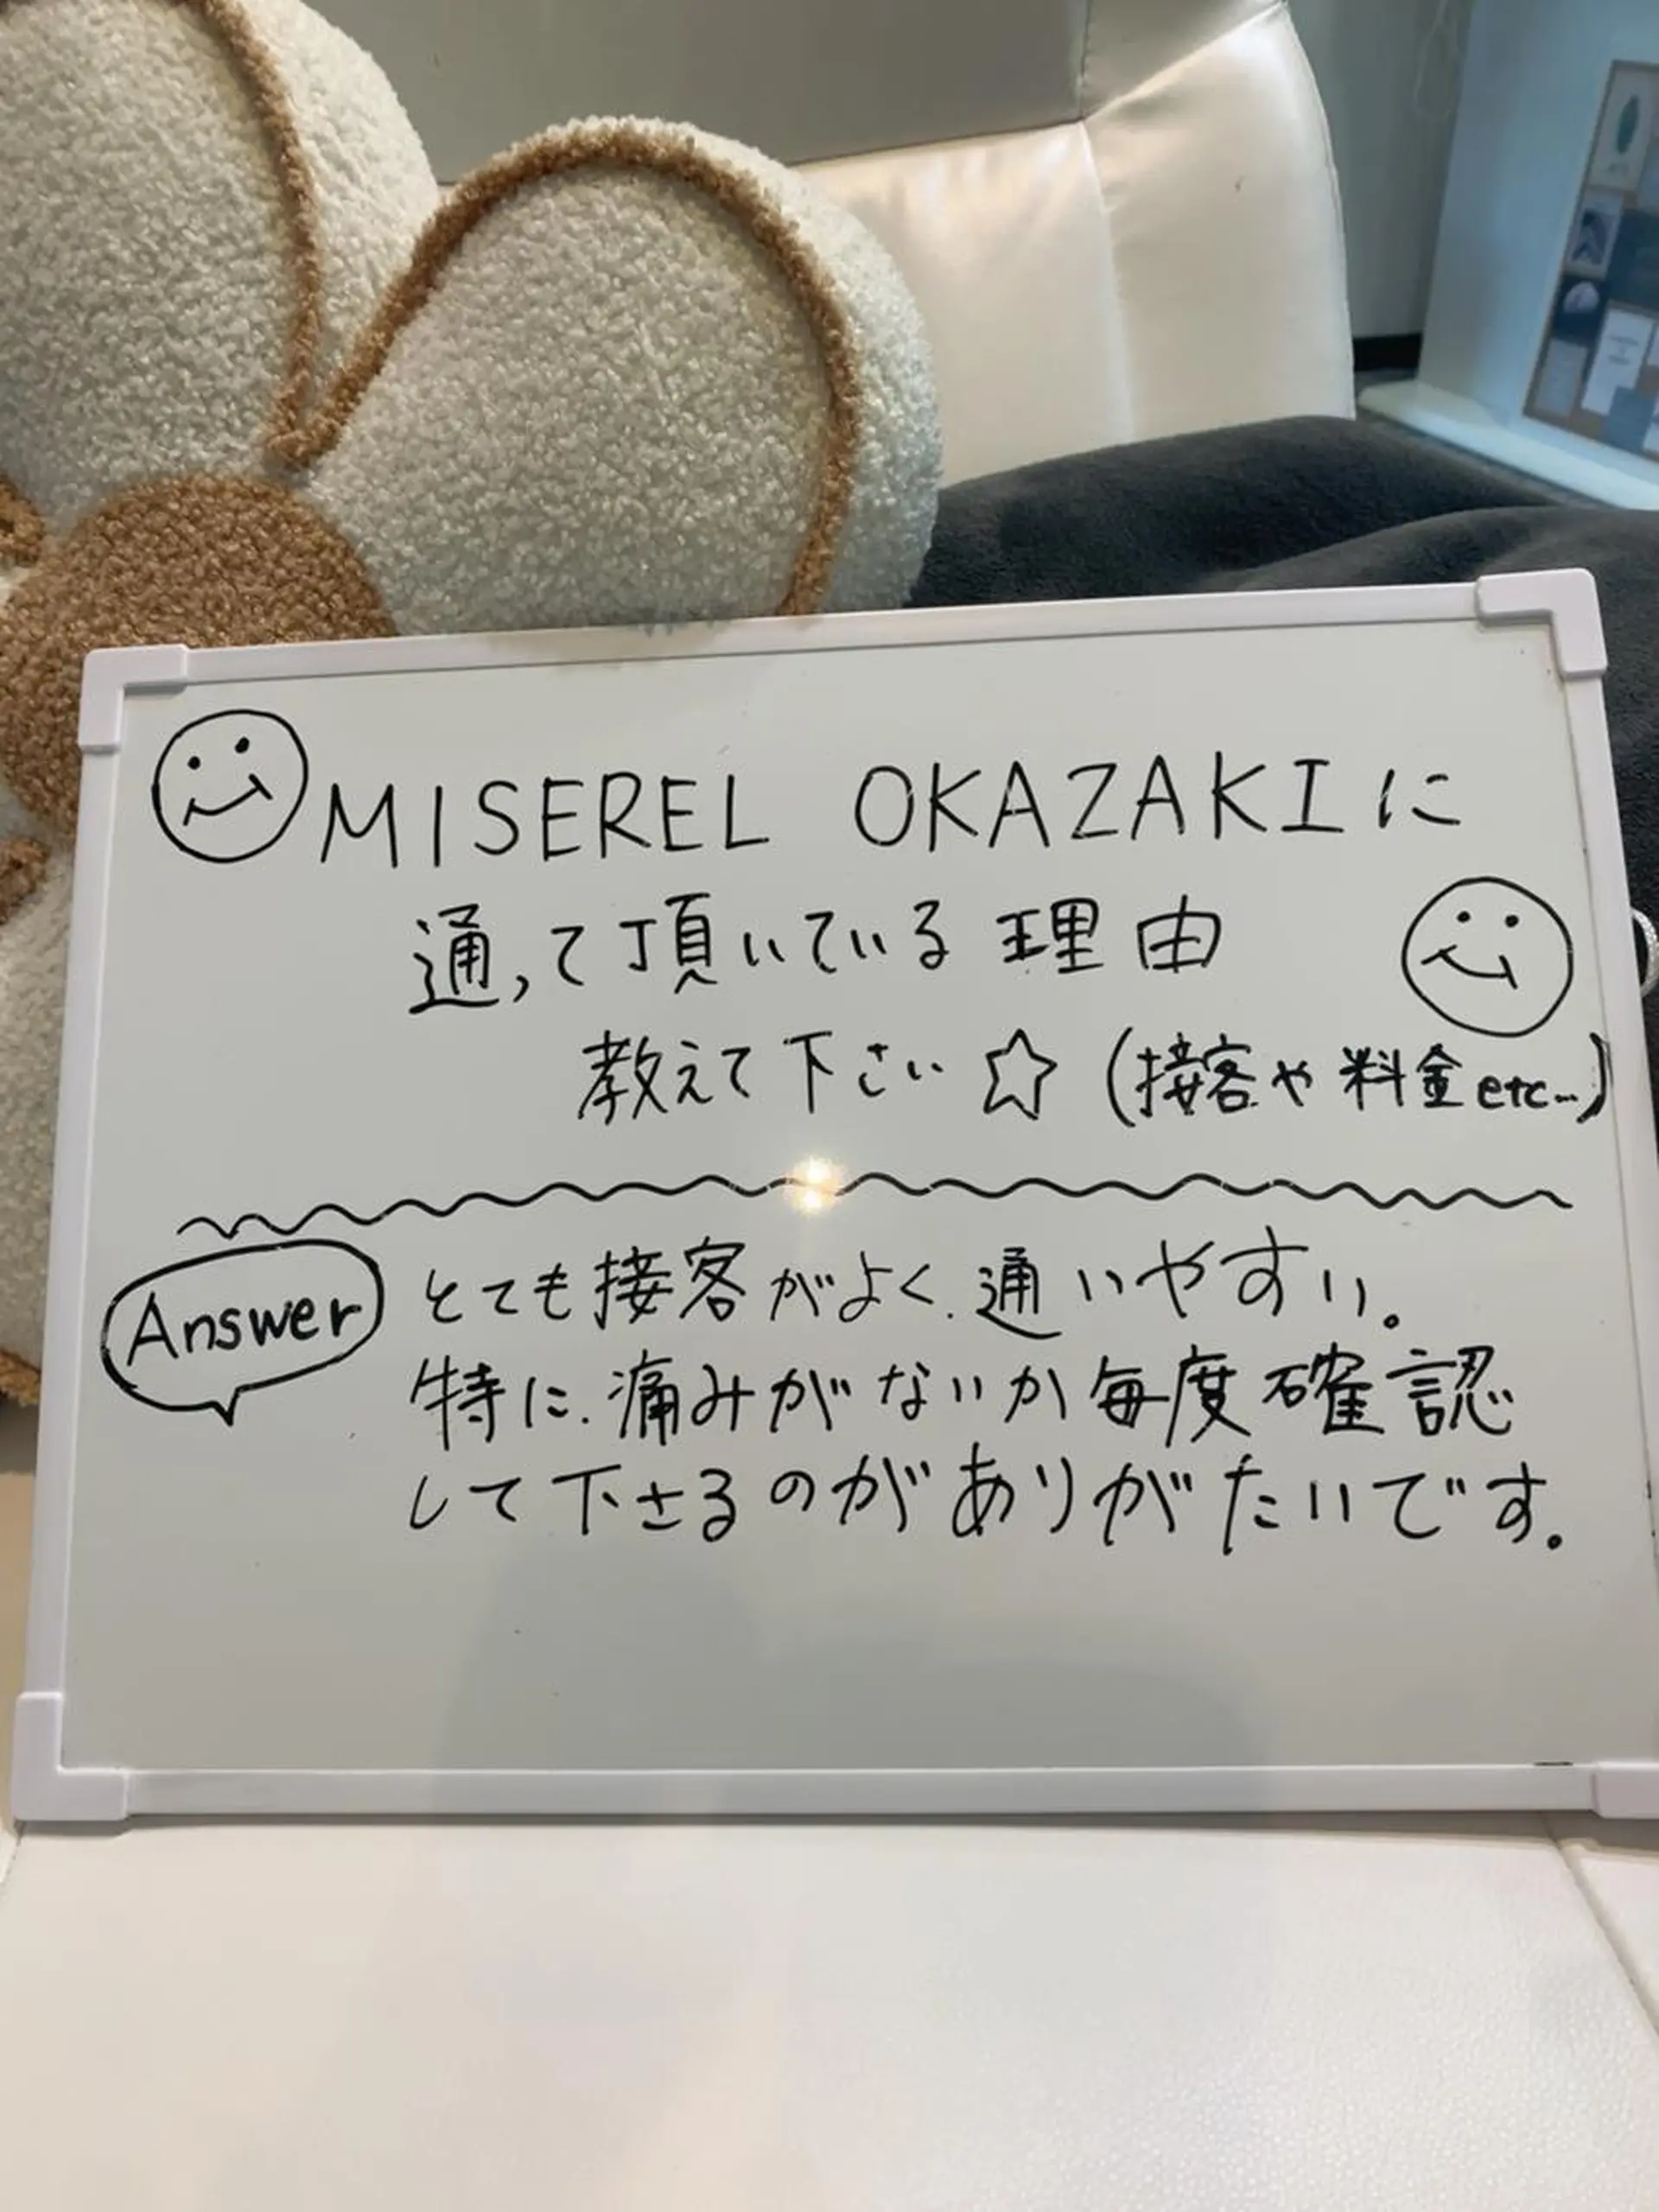 MISEREL OKAZAKIに
通って頂いている理由
教えて下さい☆(接客や料金etc...)
Answer
とても接客がよく、通いやすい。
特に、痛みがないか毎度確認
して下さるのがありがたいです。